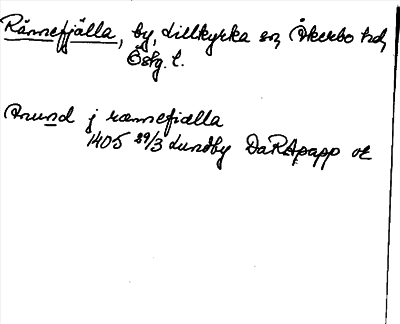 Rännefjälla, by, Lillkyrka sn, Åkerbo hd,
Östg. l.
Anund j rænnefiælla
1405 29/3 Lundby DaRApapp or